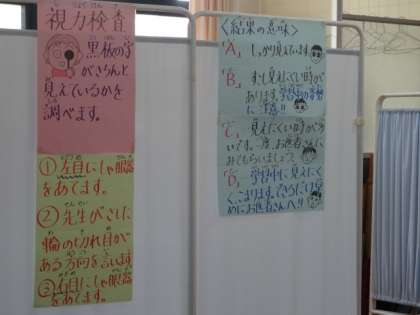 視力検査
黒板の字
がきちんと
見えているかを
調べます。
①左目にしゃ眼器
をあてます。
②先生がさした
輪の切れ目が
ある方向を言います。
③右目にしゃ眼器
をあてます。
〈結果の意味〉
「A」しっかり見えています。
「B」すこし見えにくい時が
あります。
に注意!!
「C」見えにくい時が多
いです。一度、お医者さんで
みてもらいましょう
「D」学習中に見えにく
く、こまります。できるだけ早
めにお医者さんへ!!